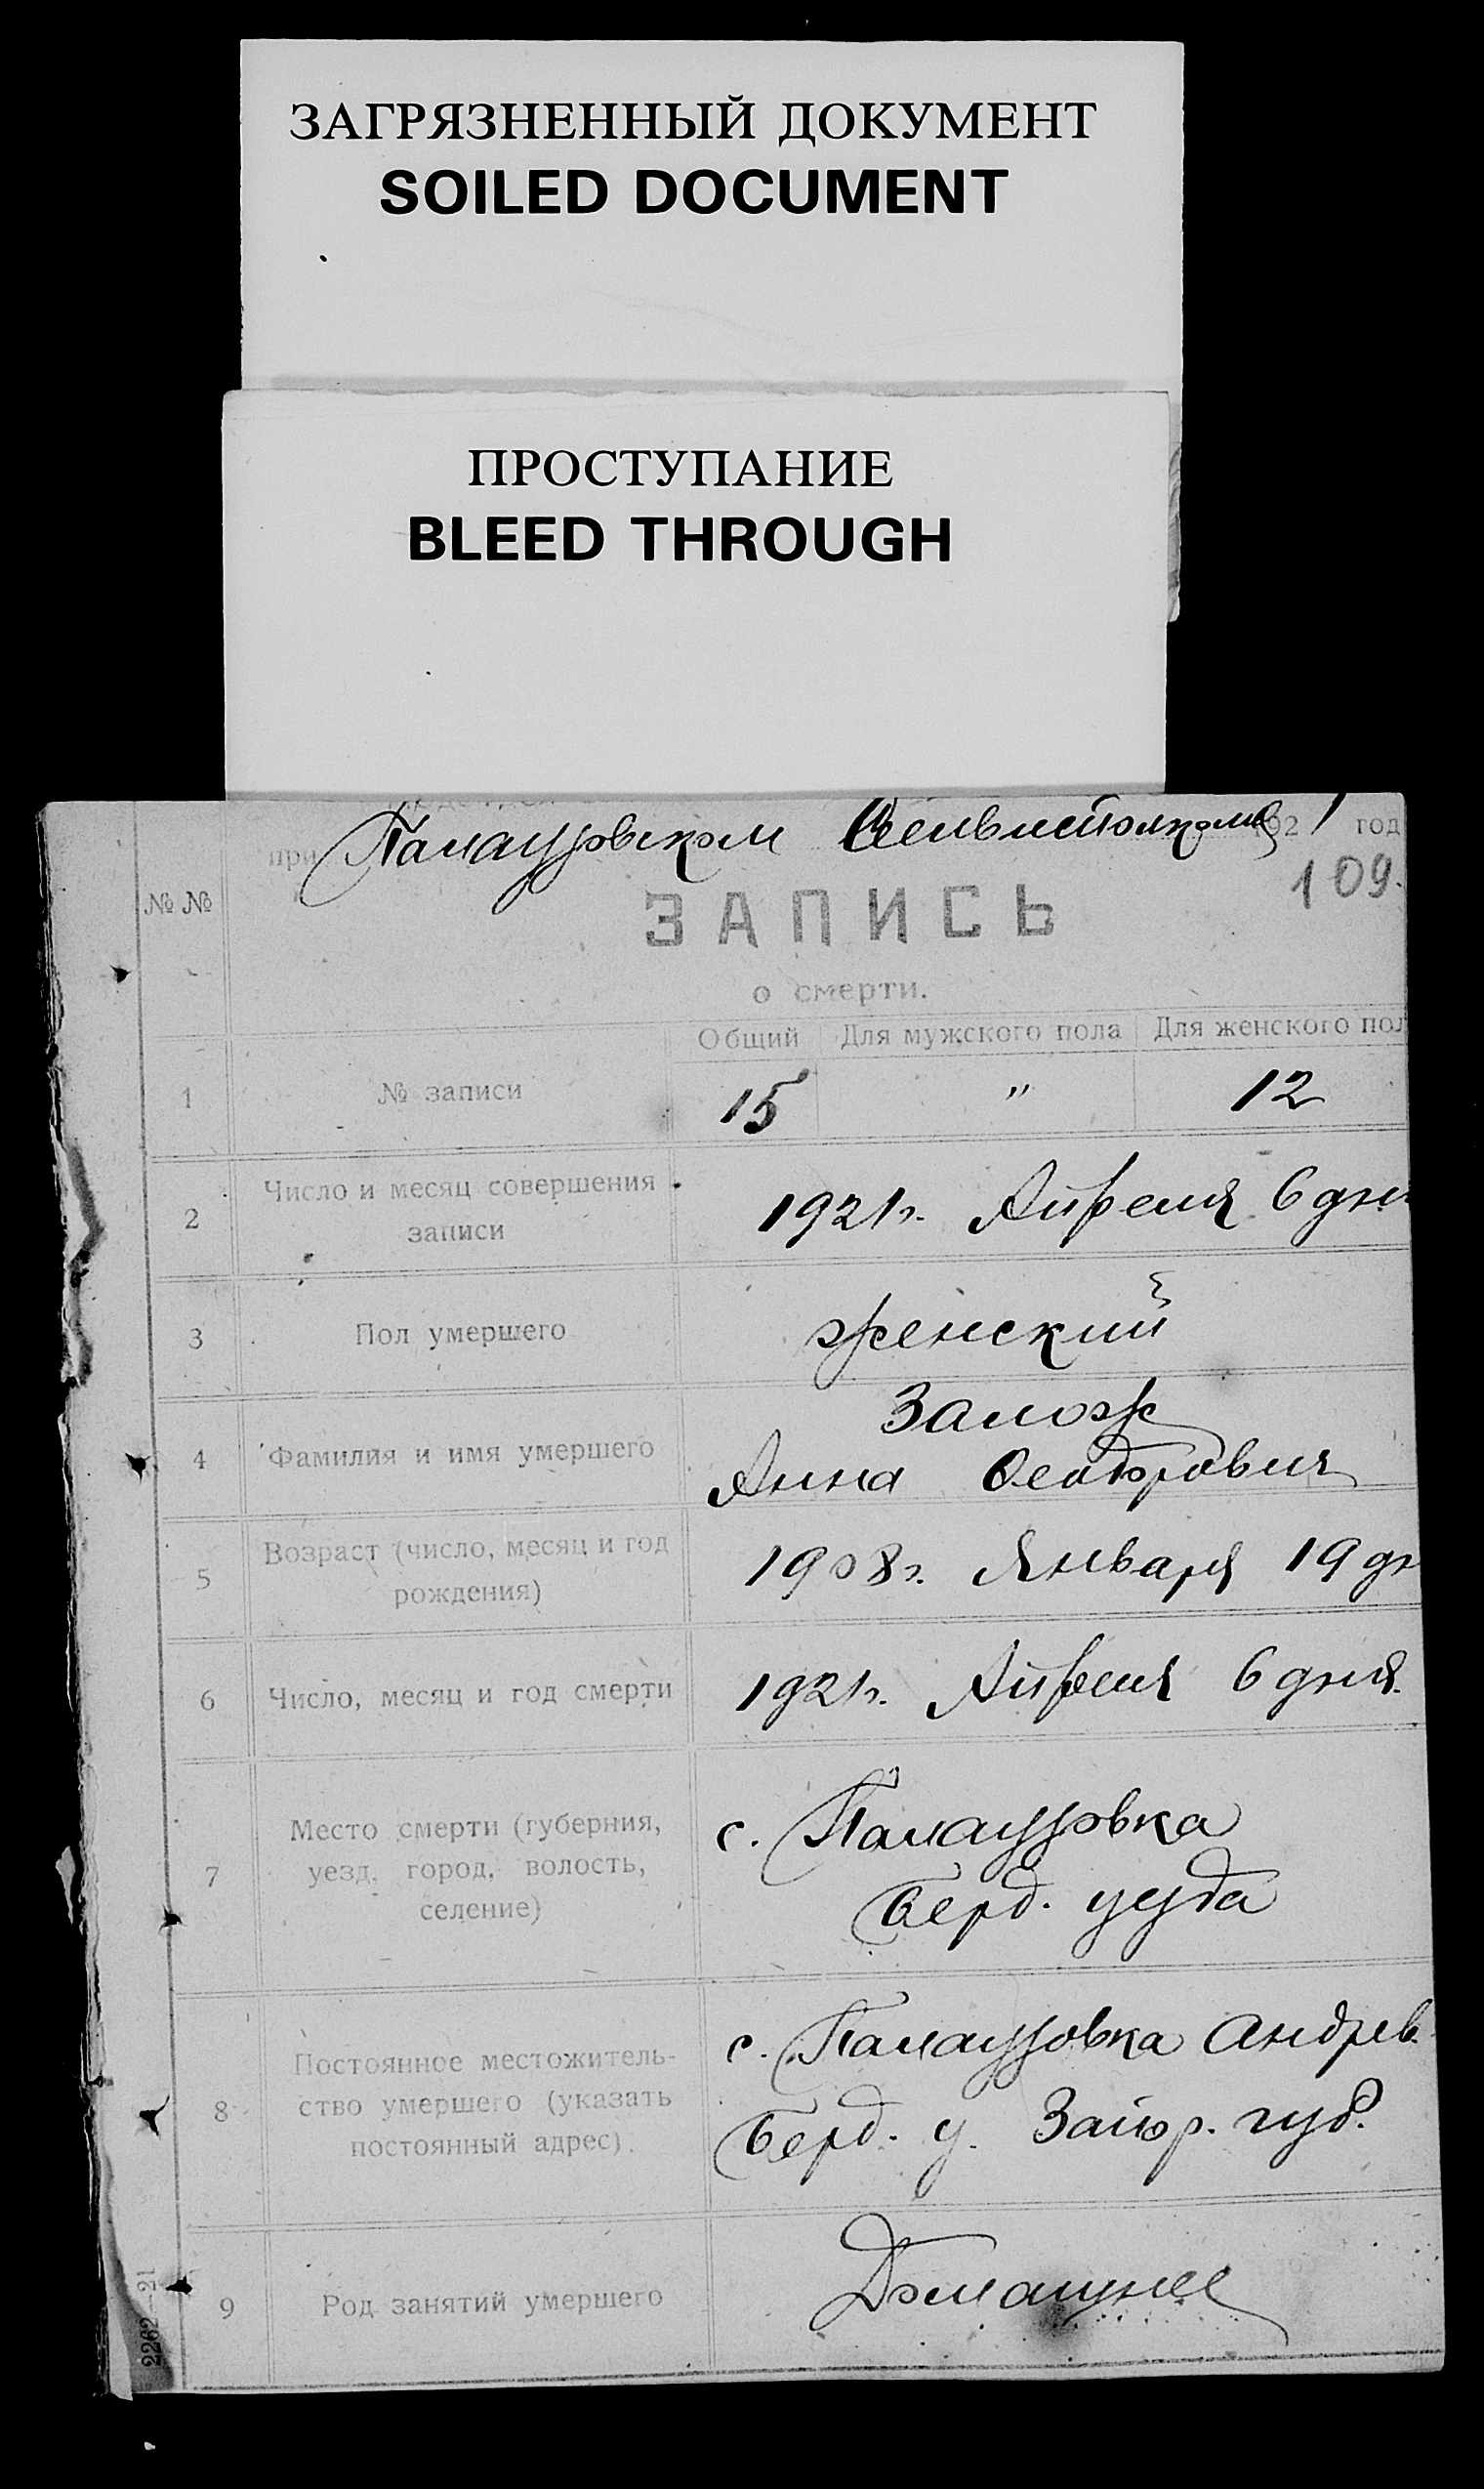 ЗАГРЯЗНЕННЫЙ ДОКУМЕНТ
SOILED DOCUMENT
ПРОСТУПАНИЕ
BLEED THROUGH
при Палаузовском Сельисполкоме 1921 год
109.
№ №
ЗАПИСЬ
о смерти.
Общий Для мужского пола Для женского пол
1 № записи 15 " 12
2 Число и месяц совершения записи 1921 г. Апреля 6 дня
3 Пол умершего женский
4 Фамилия и имя умершего Залож
Анна Феодоровна
5 Возраст (число, месяц и год рождения) 1908 г. Января 19 дн
6 Число, месяц и год смерти 1921 г. Апреля 6 дня.
7 Место смерти (губерния, уезд, город, волость, селение) с. Палаузовка
Берд. уезда
8 Постоянное местожитель-
ство умершего (указать
постоянный адрес). с. Палаузовка Андрев.
Берд. у. Запор. губ.
9 Род занятий умершего Домашнее
2262—21